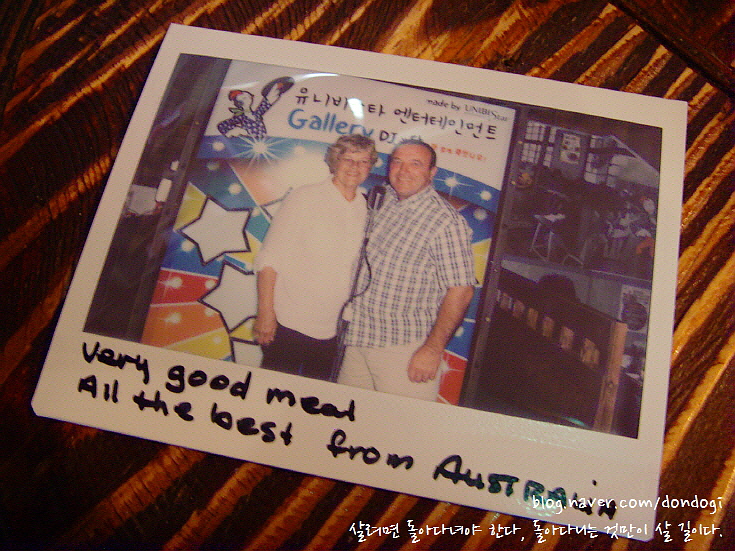 made by UNIBIStar
유니비스타 엔터테인먼트
Gallery DJ
very good meal
All the best from AUSTRALIA
blog.naver.com/dondogi
살려면 돌아다녀야 한다, 돌아다니는 것만이 살 길이다.